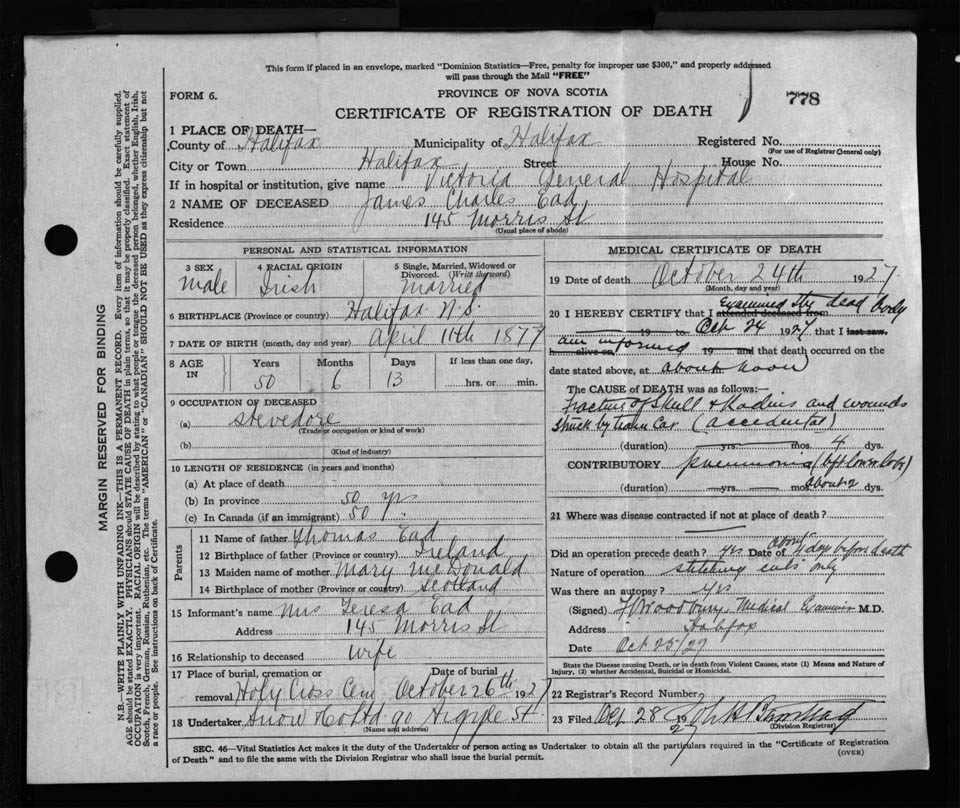 This form if placed in an envelope, marked "Dominion Statistics—Free, penalty for improper use $300," and properly addressed
will pass through the Mail "FREE"
FORM 6.
PROVINCE OF NOVA SCOTIA
778
CERTIFICATE OF REGISTRATION OF DEATH
1 PLACE OF DEATH—
County of Halifax Municipality of Halifax Registered No.
(For use of Registrar General only)
City or Town Halifax Street House No.
If in hospital or institution, give name Victoria General Hospital
2 NAME OF DECEASED James Charles Ead
Residence 145 Morris St
(Usual place of abode)
PERSONAL AND STATISTICAL INFORMATION
3 SEX 4 RACIAL ORIGIN 5 Single, Married, Widowed or
Divorced. (Write the word)
male Irish Married
6 BIRTHPLACE (Province or country) Halifax N.S.
7 DATE OF BIRTH (month, day and year) April 11th 1877
8 AGE IN Years Months Days If less than one day,
50 6 13 hrs. or min.
9 OCCUPATION OF DECEASED
(a) Stevedore
(Trade or occupation or kind of work)
(b)
(Kind of industry)
10 LENGTH OF RESIDENCE (in years and months)
(a) At place of death
(b) In province 50 yrs
(c) In Canada (if an immigrant) 50 "
Parents
11 Name of father Thomas Ead
12 Birthplace of father (Province or country) Ireland
13 Maiden name of mother Mary McDonald
14 Birthplace of mother (Province or country) Scotland
15 Informant's name Mrs Teresa Ead
Address 145 Morris St
16 Relationship to deceased wife
17 Place of burial, cremation or Date of burial
removal Holy Cross Cem October 26th 1927
18 Undertaker Snow Co Ltd 90 Argyle St.
(Name and address)
MEDICAL CERTIFICATE OF DEATH
19 Date of death October 24th 1927
(Month, day and year)
Examined the dead body
20 I HEREBY CERTIFY that I attended deceased from
19 to Oct 24 1927 that I last saw
am informed
h alive on 19 and that death occurred on the
date stated above, at about noon
The CAUSE OF DEATH was as follows:—
Fracture of Skull & Radius and wounds
Struck by tram Car (accidental)
(duration) yrs. mos. 4 dys.
CONTRIBUTORY pneumonia (left lower lobe)
(duration) yrs. mos. about 2 dys.
21 Where was disease contracted if not at place of death?
Did an operation precede death? yes Date of about 4 days before death
Nature of operation stitching cuts only
Was there an autopsy? yes
(Signed) Woodbury Medical Examiner M.D.
Address Halifax
Date Oct 25/27
State the Disease causing Death, or in death from Violent Causes, state (1) Means and Nature of
Injury, (2) whether Accidental, Suicidal or Homicidal.
22 Registrar's Record Number
23 Filed Oct 28 1927
(Division Registrar)
SEC. 46—Vital Statistics Act makes it the duty of the Undertaker or person acting as Undertaker to obtain all the particulars required in the "Certificate of Registration
of Death" and to file the same with the Division Registrar who shall issue the burial permit.
(OVER)
MARGIN RESERVED FOR BINDING
N.B.—WRITE PLAINLY WITH UNFADING INK—THIS IS A PERMANENT RECORD. Every item of information should be carefully supplied.
AGE should be stated EXACTLY. PHYSICIANS should STATE CAUSE OF DEATH in plain terms, so that it may be properly classified. Exact statement of
OCCUPATION is very important. RACIAL ORIGIN will be described by stating to what people or tongue the deceased person belonged, whether English, Irish,
Scotch, French, German, Russian, Ruthenian, etc. The terms "AMERICAN" or "CANADIAN" SHOULD NOT BE USED as they express citizenship but not
a race or people. See instructions on back of Certificate.